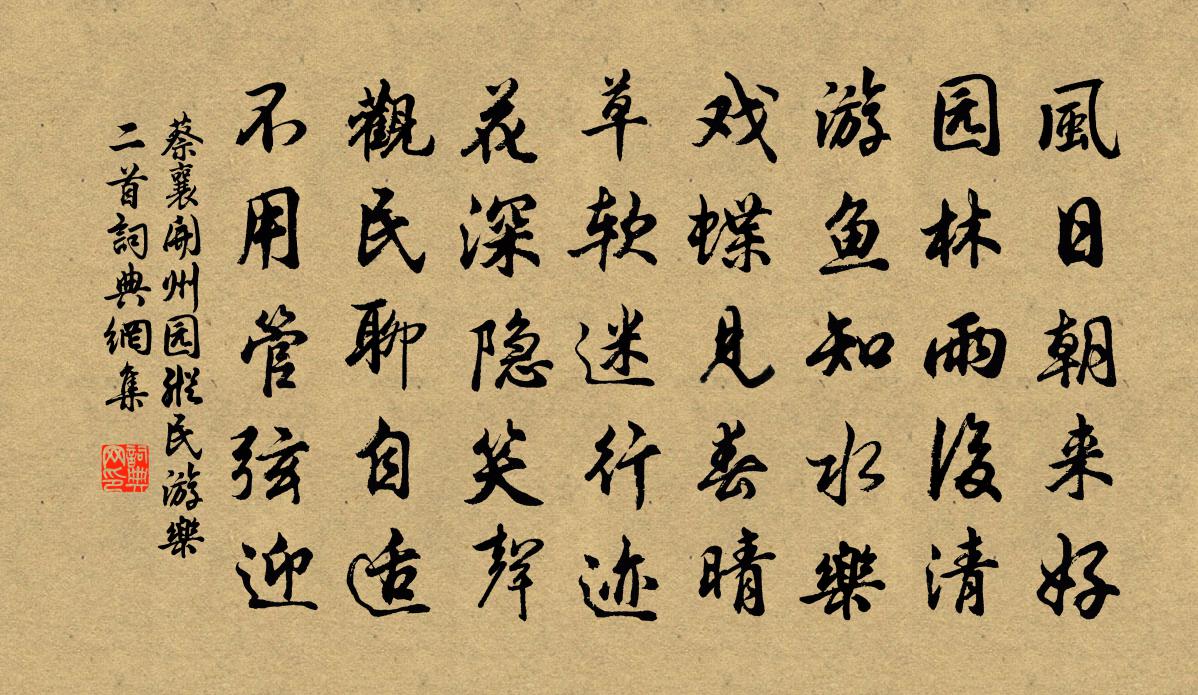 風日朝来好
园林雨後清
游鱼知水樂
戏蝶見春晴
草软迷行迹
花深隐笑聲
觀民聊自适
不用管弦迎
蔡襄開州园縱民游樂
二首詞典網集
詞典
网印